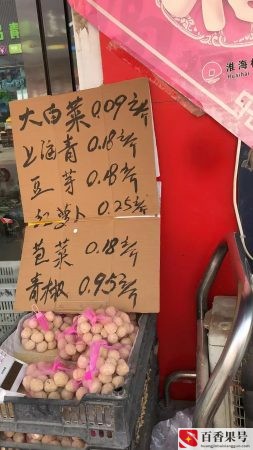 大白菜 0.09元/斤
上海青 0.18元/斤
豆芽 0.48元/斤
红萝卜 0.25元/斤
苞菜 0.18元/斤
青椒 0.95元/斤
淮海
Huaihai
青
百香果号